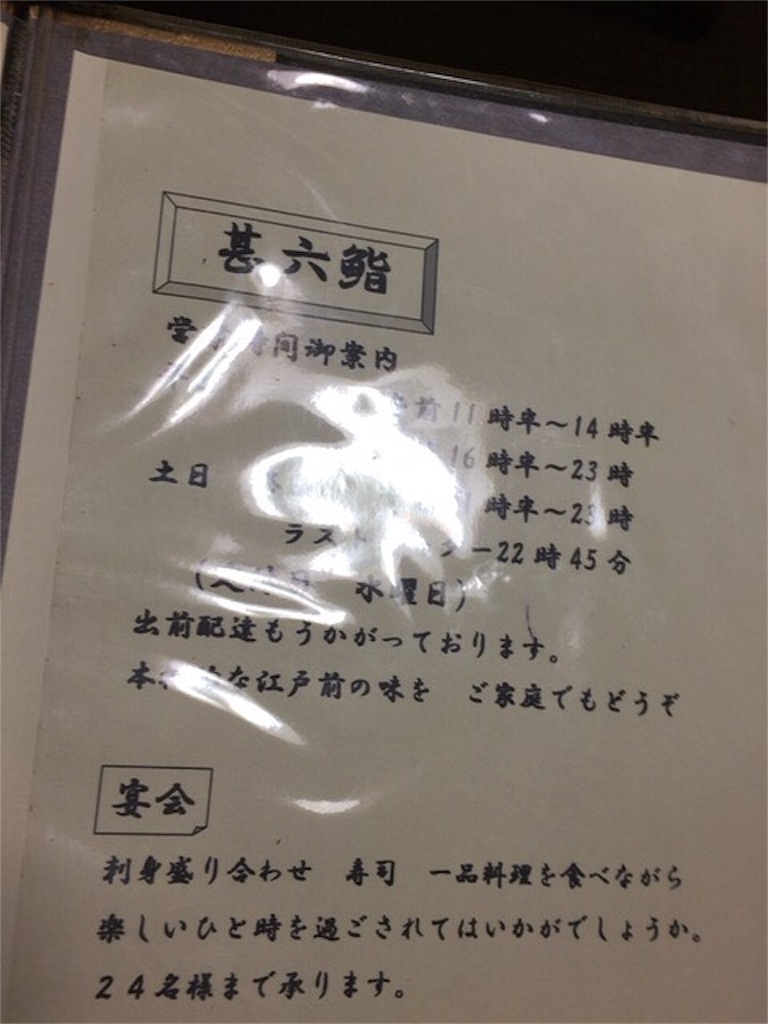 甚六鮨
営 時間御案内
前11時半～14時半
16時半～23時
土日
時半～23時
ラスト ー22時45分
水曜日）
出前配達もうかがっております。
本 な江戸前の味を　ご家庭でもどうぞ
宴会
刺身盛り合わせ　寿司　一品料理を食べながら
楽しいひと時を過ごされてはいかがでしょうか。
24名様まで承ります。